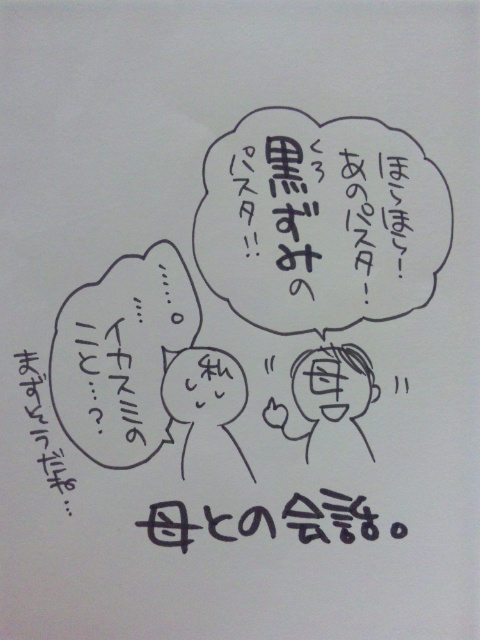 ほらほら!
あのパスタ!
黒ずみの
くろ
パスタ!!
母
私
……。
……
イカスミの
こと…?
まずそうだね…
母との会話。